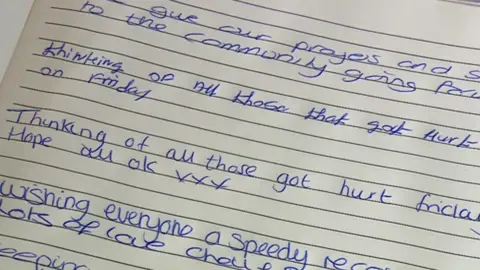 gue our prayes and s
to the community going
thinking of all those that got hurt
on Friday
Thinking of all those got hurt friday
Hope all ok xxx
wishing everyone a speedy reco
Lots of love
keeping